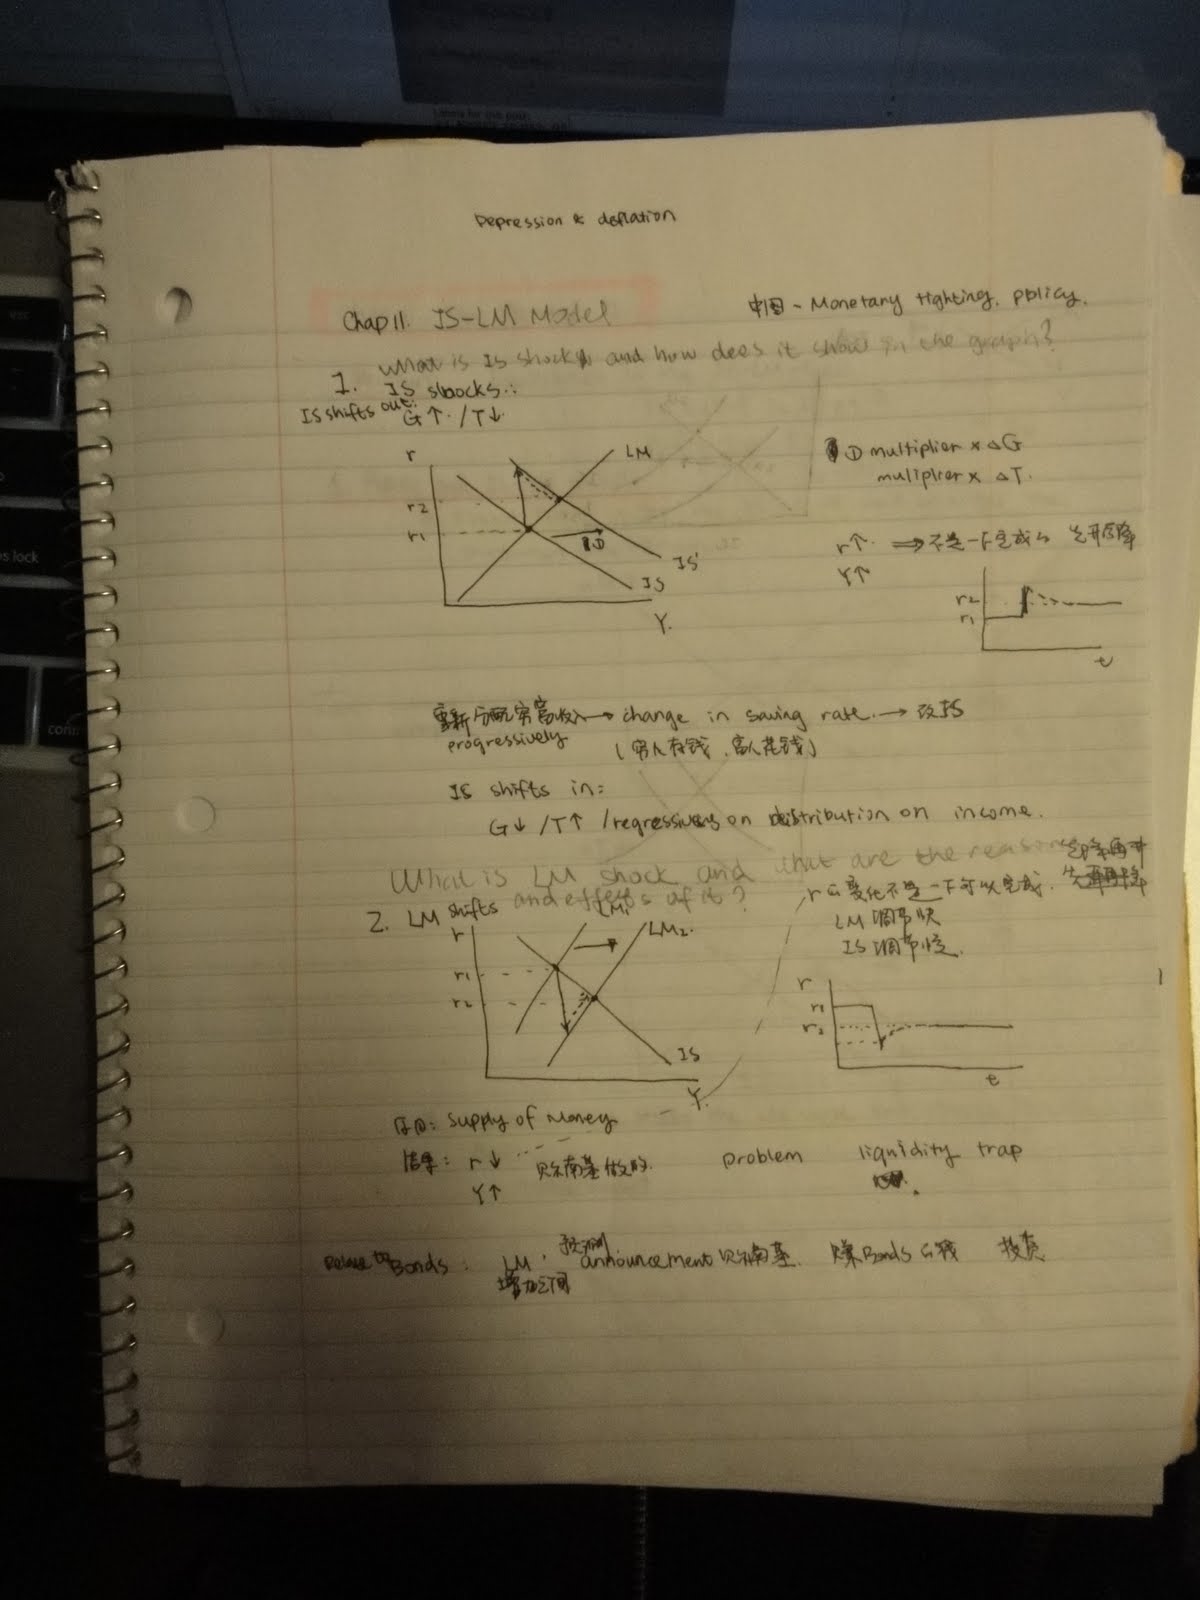 Depression & deflation
Chap 11. IS-LM Model
中国 - Monetary tighting. policy.
What is IS shocks and how does it show in the graph?
1. IS shocks:
IS shifts out:
G↑ /T↓
r
LM
r2
r1
①
IS'
IS
Y.
① multiplier × △G
muliplier × △T.
r↑ ⇒ 不是一下完成的 先升后降
Y↑
r2
r1
t
重新分配穷富收入 → change in saving rate. → 改IS
progressively
(穷人存钱, 富人花钱)
IS shifts in:
G↓ /T↑ /regressively on distribution on income.
What is LM shock and what are the reasons
and effects of it?
先降再升
r的变化不是一下可以完成.
LM 调节快
IS 调节慢.
2. LM shifts
r
LM1
LM2.
r1
r2
IS
Y.
r
r1
r2
t
原因: supply of money
结果: r↓ 贝尔南基做的. problem liquidity trap
Y↑
Relate to Bonds: LM. 预测 announcement 贝尔南基. 赚Bonds的钱 投资
增加空间